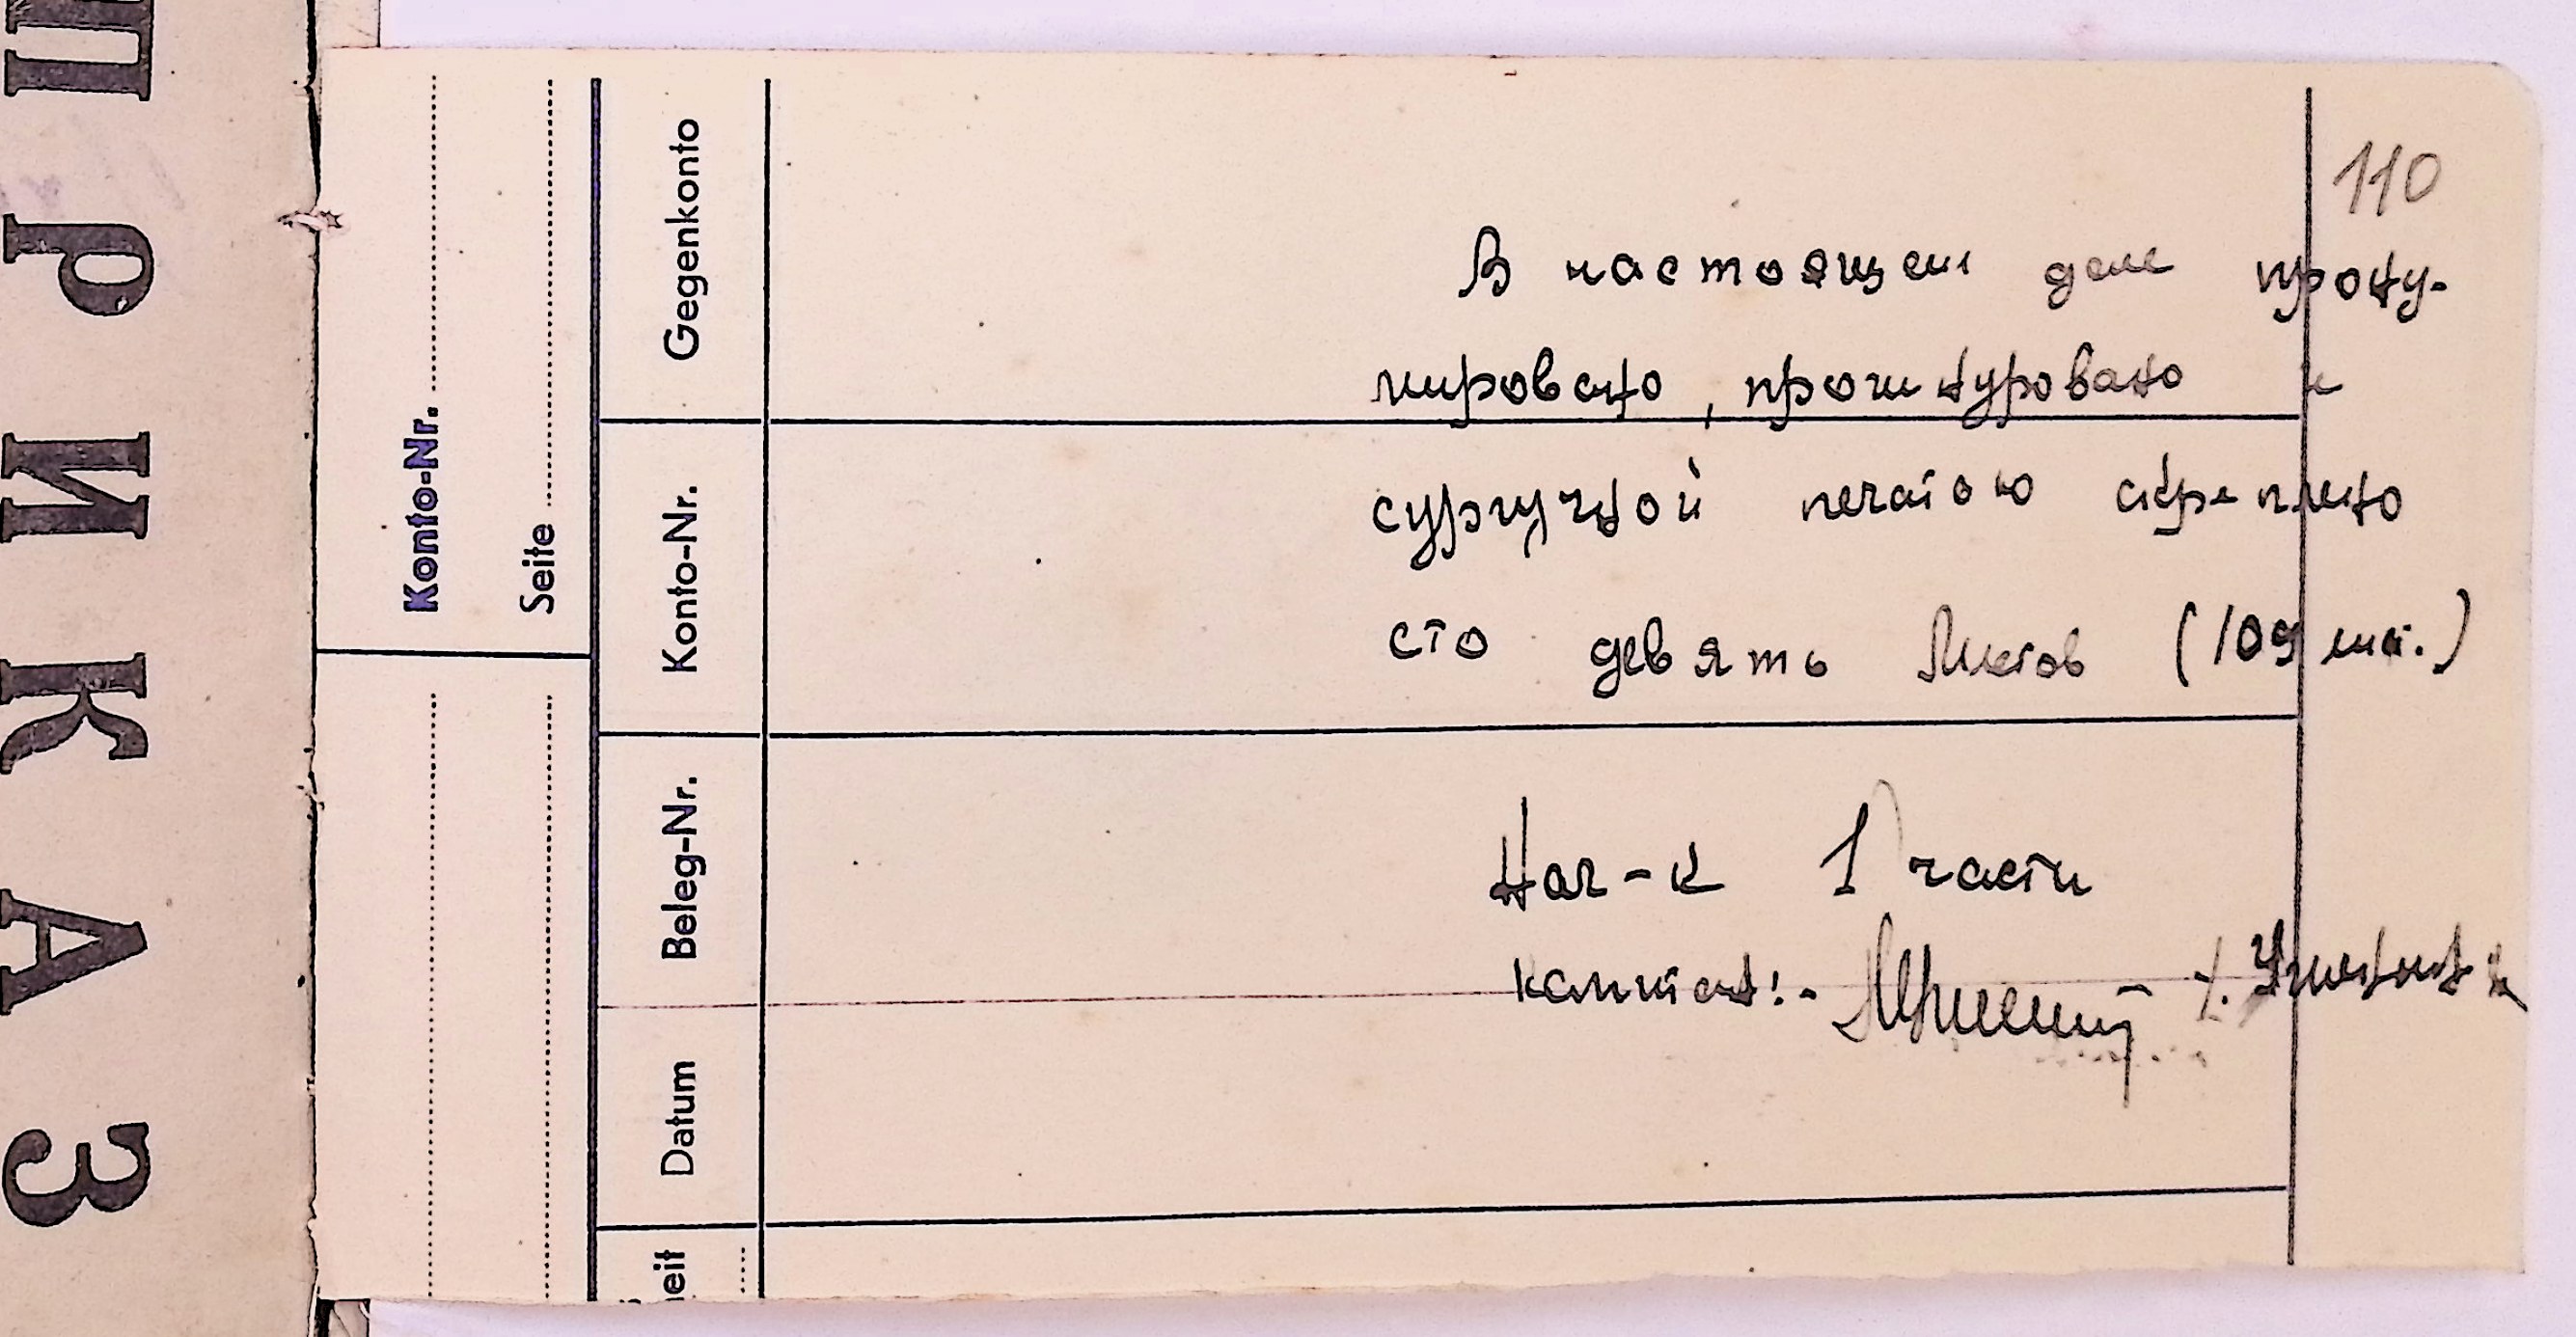 ПРИКАЗ
Konto-Nr.
Seite
Gegenkonto
Konto-Nr.
Beleg-Nr.
Datum
heit
110
В настоящем деле прону-
мировано, прошнуровано и
сургучной печатью скреплено
сто девять листов (109 лист.)
Нач-к 1 части
капитан:-